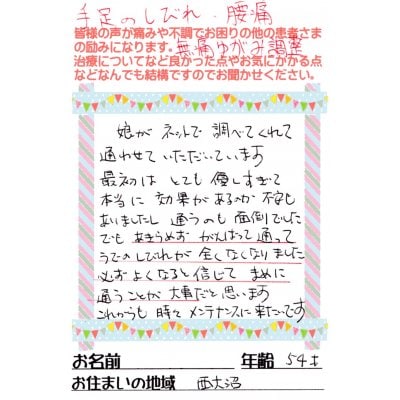 手足のしびれ・腰痛
皆様の声が痛みや不調でお困りの他の患者さま
の励みになります。無痛ゆがみ調整
治療についてなど良かった点やお気にかかる点
などなんでも結構ですのでお聞かせください。
娘がネットで調べてくれて
通わせていただいています
最初はとても優しすぎて
本当に効果があるのか不安も
ありましたし通うのも面倒でした
でもあきらめずがんばって通って
うでのしびれが全くなくなりました
必ずよくなると信じてまめに
通うことが大事だと思います
これからも時々メンテナンスに来たいです
お名前 年齢 54才
お住まいの地域 西大沼